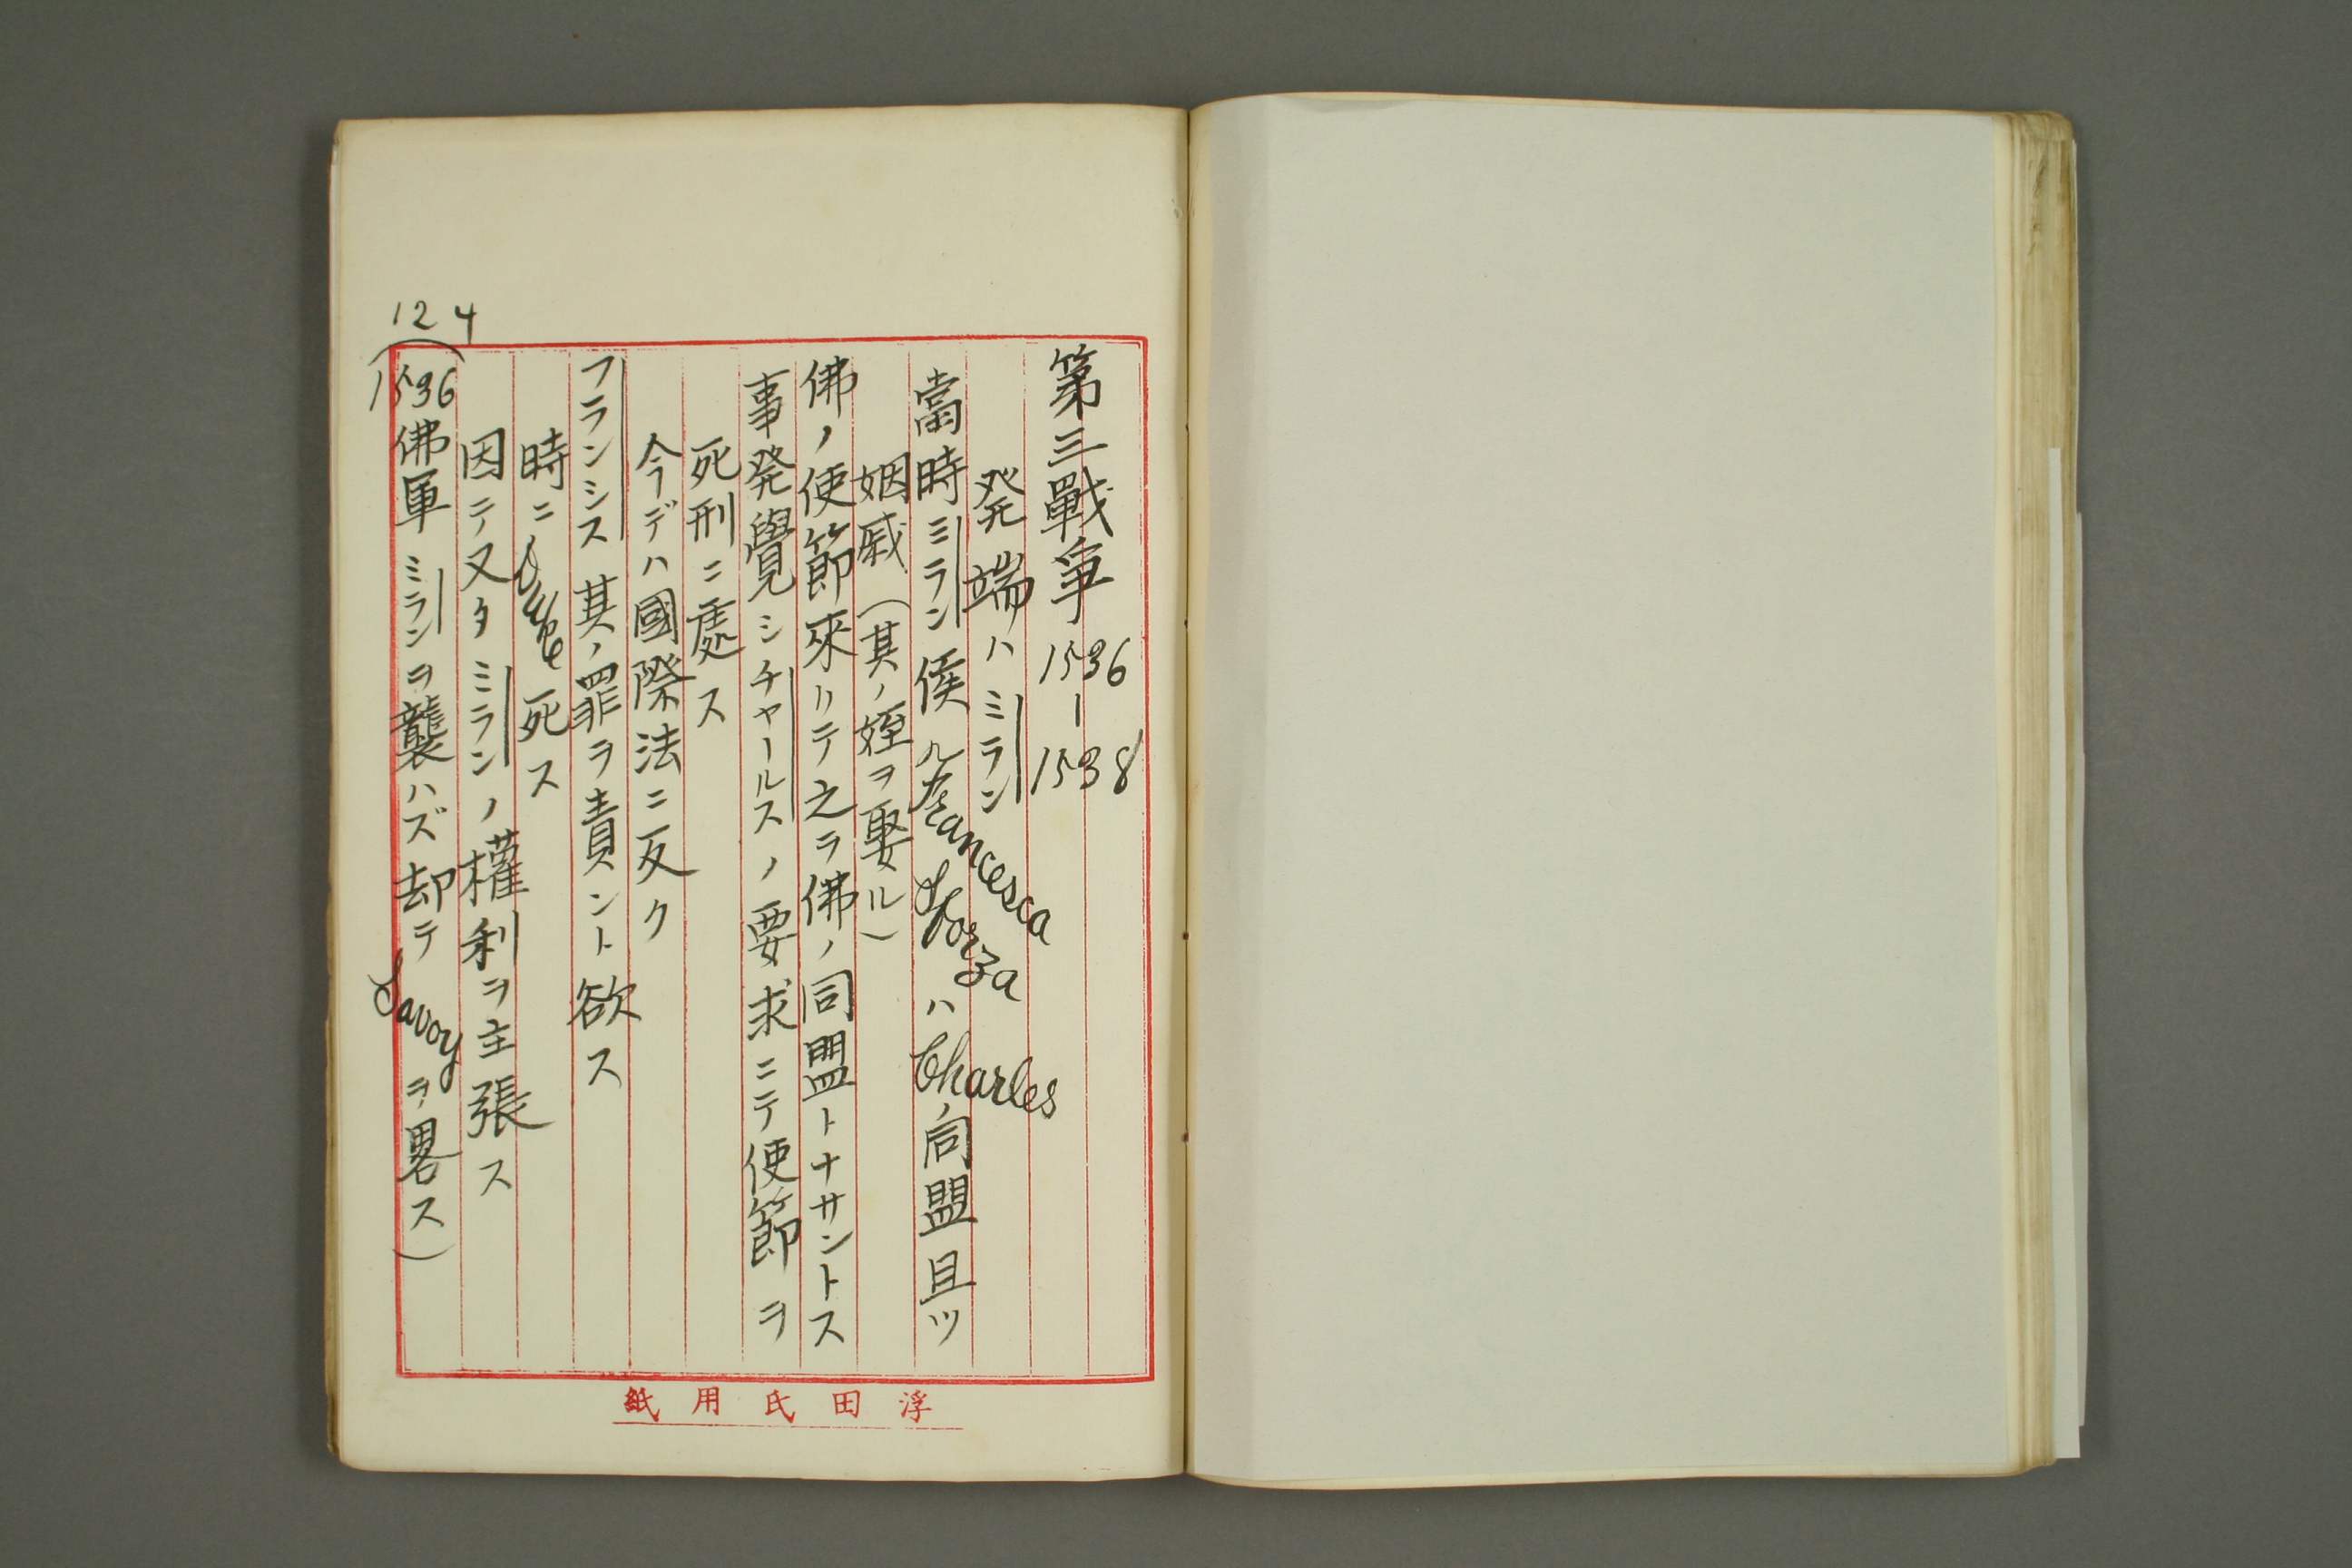 124
第三戰爭 1536-1538
発端ハミラン
當時ミラン侯ル Francesca Sforza ハ Charles ノ同盟且ツ
姻戚(其ノ姪ヲ娶ル)
佛ノ使節來リテ之ヲ佛ノ同盟トナサントス
事発覺シチャールスノ要求ニテ使節ヲ
死刑ニ處ス
今デハ國際法ニ反ク
フランシス其ノ罪ヲ責ント欲ス
時ニ Duke 死ス
因テ又タミランノ權利ヲ主張ス
(1536佛軍ミランヲ襲ハズ却テ Savoy ヲ畧ス)
浮田氏用紙